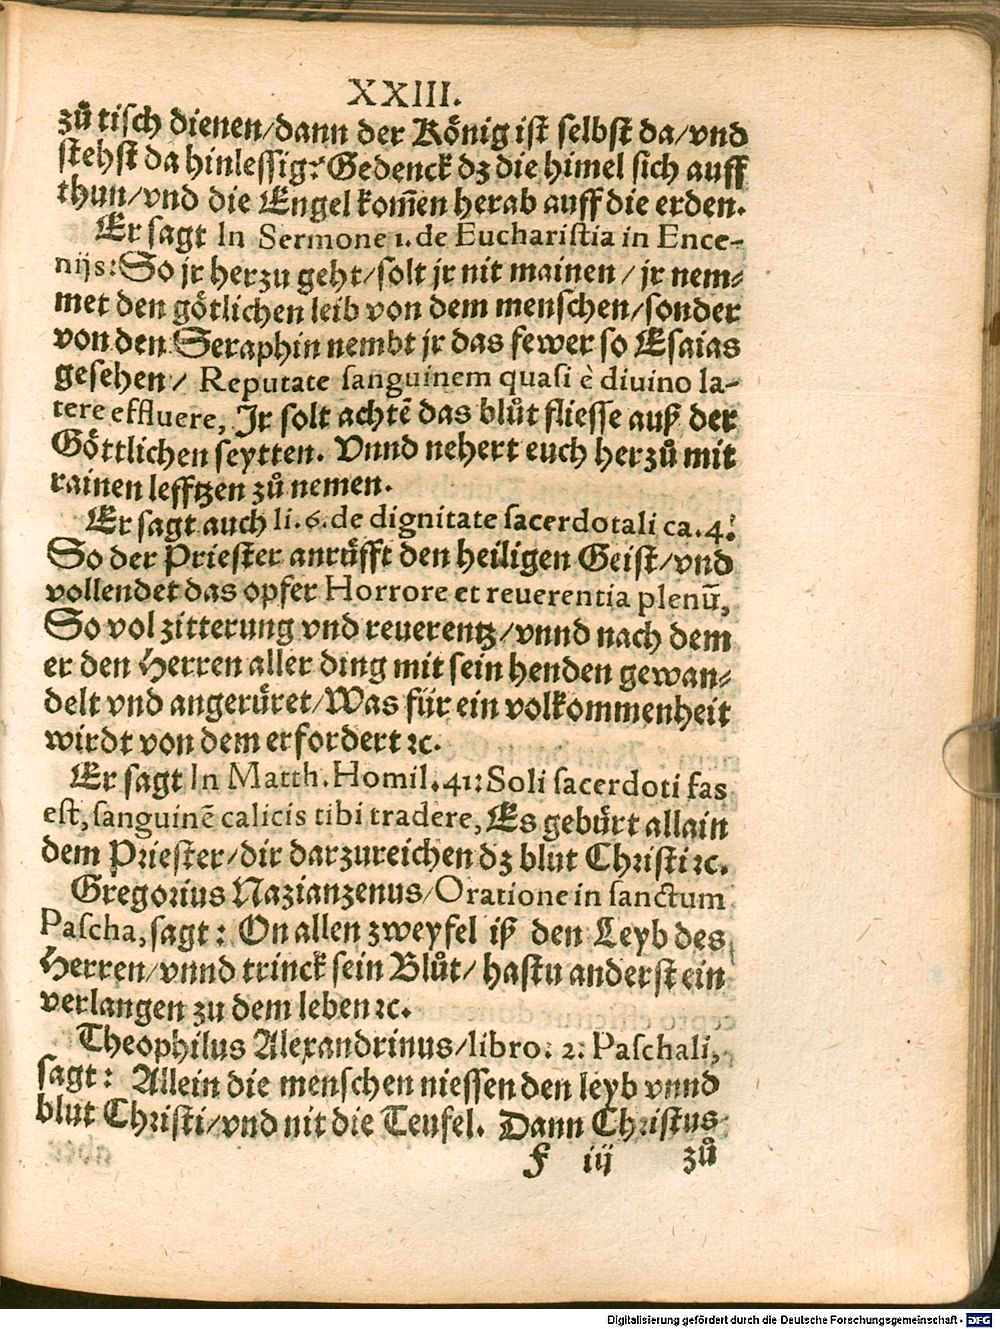 XXIII.
zů tisch dienen/dann der König ist selbst da/vnd
stehst da hinlessig? Gedenck dz die himel sich auff
thun/vnd die Engel kom̃en herab auff die erden.
Er sagt In Sermone 1. de Eucharistia in Ence-
nijs: So jr herzu geht/solt jr nit mainen/ jr nem-
met den götlichen leib von dem menschen/sonder
von den Seraphin nembt jr das fewer so Esaias
gesehen/ Reputate sanguinem quasi è diuino la-
tere effluere, Jr solt achtẽ das blůt fliesse auß der
Göttlichen seytten. Vnnd nehert euch herzů mit
rainen lefftzen zů nemen.
Er sagt auch li. 6. de dignitate sacerdotali ca. 4.
So der Priester anrüfft den heiligen Geist/vnd
vollendet das opfer Horrore et reuerentia plenũ,
So vol zitterung vnd reuerentz/vnnd nach dem
er den Herren aller ding mit sein henden gewan-
delt vnd angerüret/Was für ein volkommenheit
wirdt von dem erfordert ꝛc.
Er sagt In Matth. Homil. 41: Soli sacerdoti fas
est, sanguinẽ calicis tibi tradere, Es gebürt allain
dem Priester/dir darzureichen dz blut Christi ꝛc.
Gregorius Nazianzenus/Oratione in sanctum
Pascha, sagt: On allen zweyfel iß den Leyb des
Herren/vnnd trinck sein Blůt/ hastu anderst ein
verlangen zu dem leben ꝛc.
Theophilus Alexandrinus/libro. 2. Paschali,
sagt: Allein die menschen niessen den leyb vnnd
blut Christi/vnd nit die Teufel. Dann Christus
f iij zů
Digitalisierung gefördert durch die Deutsche Forschungsgemeinschaft - DFG